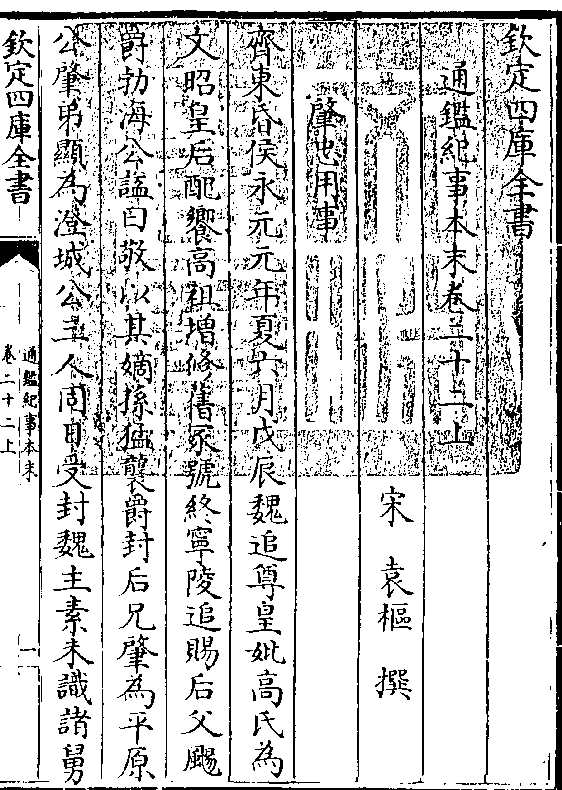 欽定四庫全書
通鑑紀事本末卷二十二上
宋 袁樞 撰
肇也用事
齊東昏侯永元元年夏六月戊辰魏追尊皇妣高氏為
文昭皇后配饗高祖增修舊冢號終寧陵追賜后父颺
爵勃海公諡曰敬以其嫡孫猛襲爵封后兄肇為平原
公肇弟顯為澄城公三人同日受封魏主素未識諸舅
欽定四庫全書
通鑑紀事本末
卷二十二上
一